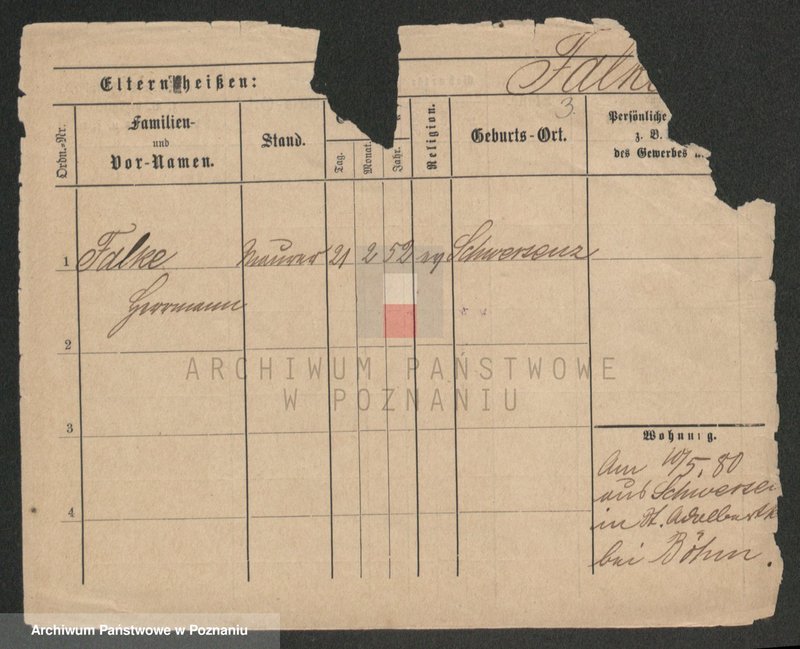 Falke
3.
Eltern heißen:
Ordn.-Nr.
Familien-
und
Vor-Namen.
Stand.
Tag.
Monat.
Jahr.
Religion.
Geburts-Ort.
Persönliche
z. B.
des Gewerbes
1 Falke Maurer 21 2 52 ev Schwersenz
Herrmann
2
3
4
Wohnung.
Am 10/5. 80
aus Schwersen
in St. Adalbert
bei Böhm.
ARCHIWUM PAŃSTWOWE
W POZNANIU
Archiwum Państwowe w Poznaniu